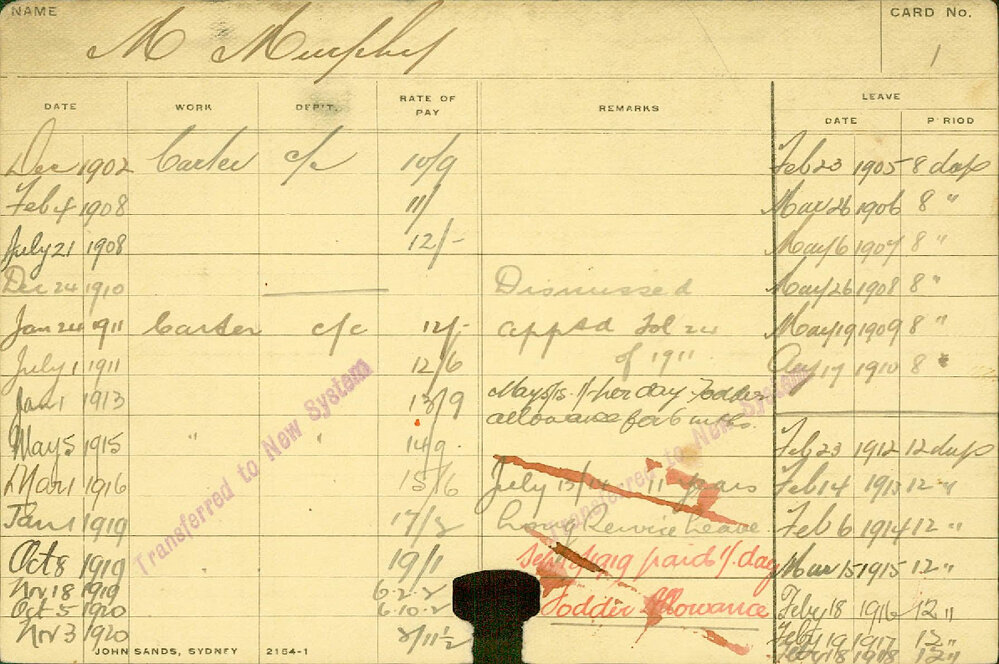 NAME
CARD No.
M Murphy
1
DATE WORK DEP'T. RATE OF PAY REMARKS LEAVE
DATE PERIOD
Dec 1902 Carter c/c 10/9 Feb 23 1905 8 days
Feb 4 1908 11/ Mar 26 1906 8 "
July 21 1908 12/- May 6 1907 8 "
Dec 24 1910 Dismissed May 26 1908 8 "
Jan 24 1911 Carter c/c 12/- apptd Fol 24 May 19 1909 8 "
July 1 1911 12/6 of 1911 Aug 17 1910 8 "
Jan 1 1913 13/9 May 5/15 1/- per day Fodder
allowance for 6 mths.
May 5 1915 " " 14/9 Feb 23 1912 12 days
Mar 1 1916 15/6 July 13/14 11 years Feb 14 1913 12 "
Jan 1 1919 17/3 Long Service Leave Feb 6 1914 12 "
Oct 8 1919 19/1 1919 paid 1/ day Mar 15 1915 12 "
Nov 18 1919 6-2-2
Oct 5 1920 6-10-2 Fodder Allowance Feby 18 1916 12 "
Nov 3 1920 2/11½ Feby 19 1917 12 "
Feby 18 1918 12 "
Transferred to New System
Transferred to New System
JOHN SANDS, SYDNEY 2164-1